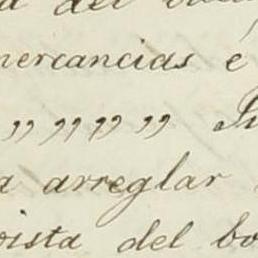 del
mercancias é
,, ,, ,, ,,
a arreglar
vista del bo